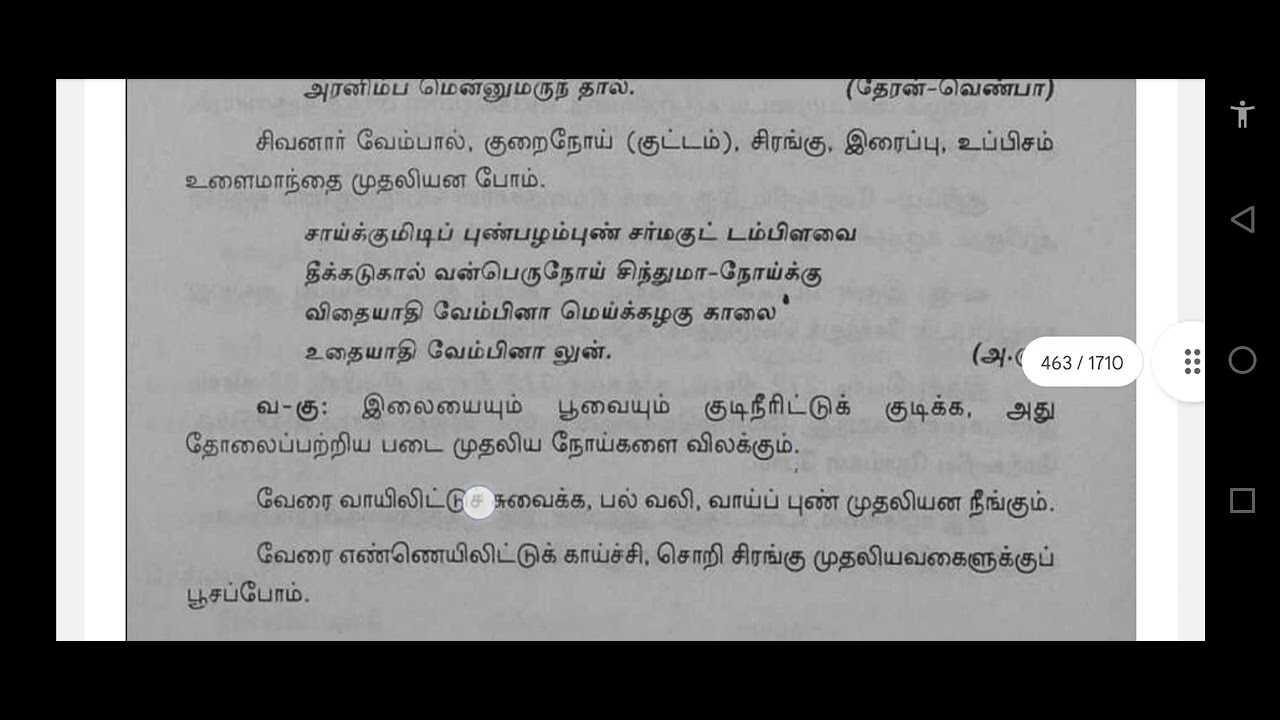 அரனிம்ப மென்னுமருந் தால். (தேரன்-வெண்பா)
சிவனார் வேம்பால், குறைநோய் (குட்டம்), சிரங்கு, இரைப்பு, உப்பிசம்
உளைமாந்தை முதலியன போம்.
சாய்க்குமிடிப் புண்பழம்புண் சர்மகுட் டம்பிளவை
தீக்கடுகால் வன்பெருநோய் சிந்துமா-நோய்க்கு
விதையாதி வேம்பினா மெய்க்கழகு காலை
உதையாதி வேம்பினா லுன். (அ.
463 / 1710
வ-கு: இலையையும் பூவையும் குடிநீரிட்டுக் குடிக்க, அது
தோலைப்பற்றிய படை முதலிய நோய்களை விலக்கும்.
வேரை வாயிலிட்டுச் சுவைக்க, பல் வலி, வாய்ப் புண் முதலியன நீங்கும்.
வேரை எண்ணெயிலிட்டுக் காய்ச்சி, சொறி சிரங்கு முதலியவகைளுக்குப்
பூசப்போம்.